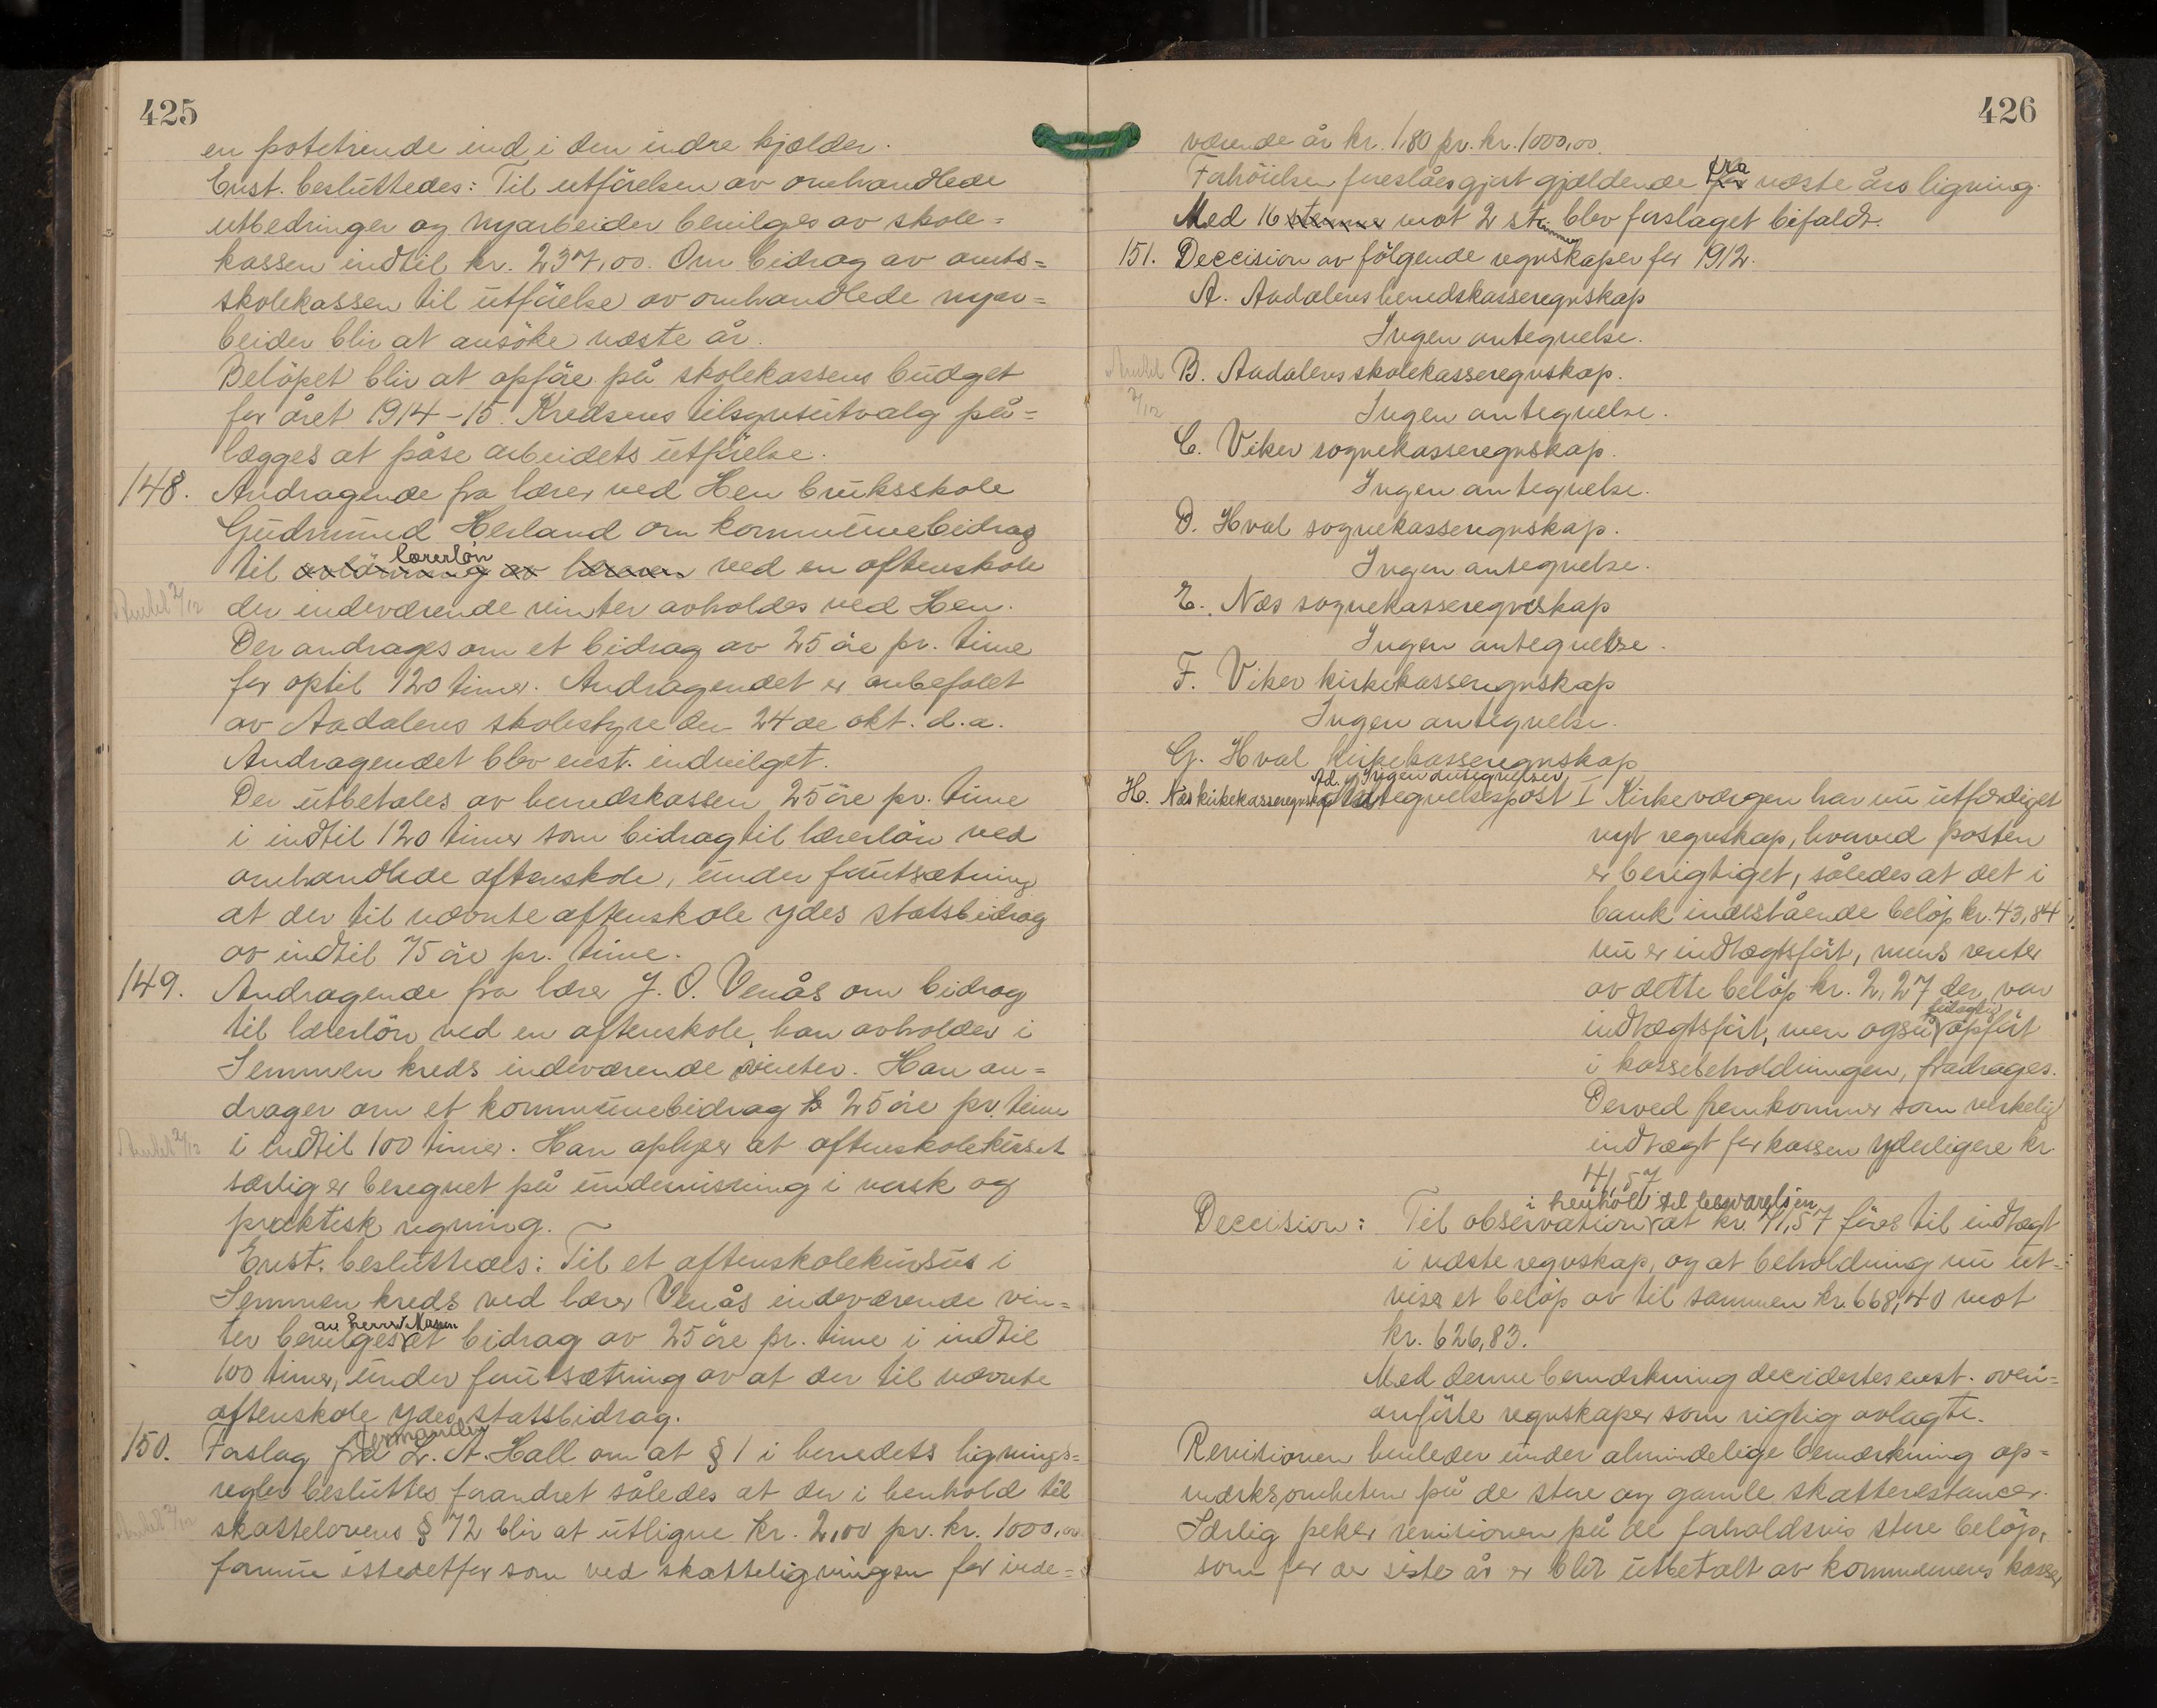 425
en potetrende ind i den indre kjælder.
Enst. besluttedes: Til utførelsen av omhandlede
utbedringer og nyarbeider bevilges av skole=
kassen indtil kr. 237,00. Om bidrag av amts=
skolekassen til utførelse av omhandlede nyar=
beider blir at ansöke næste år.
Belöpet blir at opföre på skolekassens budget
for året 1914-15. Kredsens tilsynsutvalg på=
lægges at påse arbeidets utförelse.
148. Andragende fra lærer ved Hen bruksskole
Gudmund Herland om kommunebidrag
lærerlön
til avlönning av læreren ved en aftenskole
Anmeldt 2/12
der indeværende vinter avholdes ved Hen.
Der andrages om et bidrag av 25 öre pr. time
for optil 120 timer. Andragendet er anbefalet
av Aadalens skolestyre den 24de okt. d.a.
Andragendet blev enst. indvilget.
Der utbetales av herredskassen 25 öre pr. time
i indtil 120 timer som bidrag til lærerlön ved
omhandlede aftenskole, under forutsætning
at der til nævnte aftenskole ydes statsbidrag
av indtil 75 öre pr. time.
149. Andragende fra lærer J. O. Venås om bidrag
til lærerlön ved en aftenskole, han avholder i
Semmen kreds indeværende vinter. Han an=
drager om et kommunebidrag 25 öre pr. time
Anmeldt 2/12
i indtil 100 timer. Han oplyser at aftenskolekurset
særlig er beregnet på undervisning i norsk og
praktisk regning.
Enst. besluttedes: Til et aftenskolekursus i
Semmen kreds ved lærer Venås indeværende vin=
av herredskassen
ter bevilges et bidrag av 25 öre pr. time i indtil
100 timer, under forutsætning av at der til nævnte
aftenskole ydes statsbidrag.
formanden
150. Forslag fra L. A. Hall om at § 1 i herredets lignings=
regler besluttes forandret således at der i henhold til
Anmeldt 2/12
skattelovens § 72 blir at utligne kr. 2,00 pr. kr. 1000,00
formue istedetfor som ved skatteligningen for inde=
426
værende år kr. 1,80 pr. kr. 1000,00.
fra
Forhöielsen foreslåes gjort gjældende for næste års ligning.
Med 16 stemmer mot 2 stemmer blev forslaget bifaldt.
151. Deccision av fölgende regnskaper for 1912.
A. Aadalens herredskasseregnskap
Ingen antegnelse.
Anmeldt 2/12
B. Aadalens skolekasseregnskap.
Ingen antegnelse.
C. Viker sognekasseregnskap.
Ingen antegnelse.
D. Hval sognekasseregnskap.
Ingen antegnelse.
E. Næs sognekasseregnskap
Ingen antegnelse.
F. Viker kirkekasseregnskap
Ingen antegnelse.
G. Hval kirkekasseregnskap
Ingen antegnelser
H. Næs kirkekasseregnskap Ad. antegnelsespost I Kirkeværgen har nu utfærdiget
nyt regnskap, hvorved posten
er berigtiget, således at det i
bank indestående belöp kr. 43,84
nu er indtægtsfört, mens renter
av dette belöp kr. 2,27 der var
feilagtig
indtægtsfört, men også opfört
i kassebeholdningen, fradrages.
Derved fremkommer som virkelig
indtægt for kassen yderligere kr.
41,57
i henhold til besvarelsen
Deccision: Til observation at kr. 41,57 föres til indtægt
i næste regnskap, og at beholdning nu ut=
viser et belöp av til sammen kr. 668,40 mot
kr. 626,83.
Med denne bemærkning decidertes enst. oven=
anförte regnskaper som rigtig avlagte.
Revisionen henleder under almindelige bemærkning op=
mærksomheten på de store og gamle skatterestancer.
Særlig peker revisionen på de forholdsvis store belöp,
som for de siste år er blit utbetalt av kommunens kasser